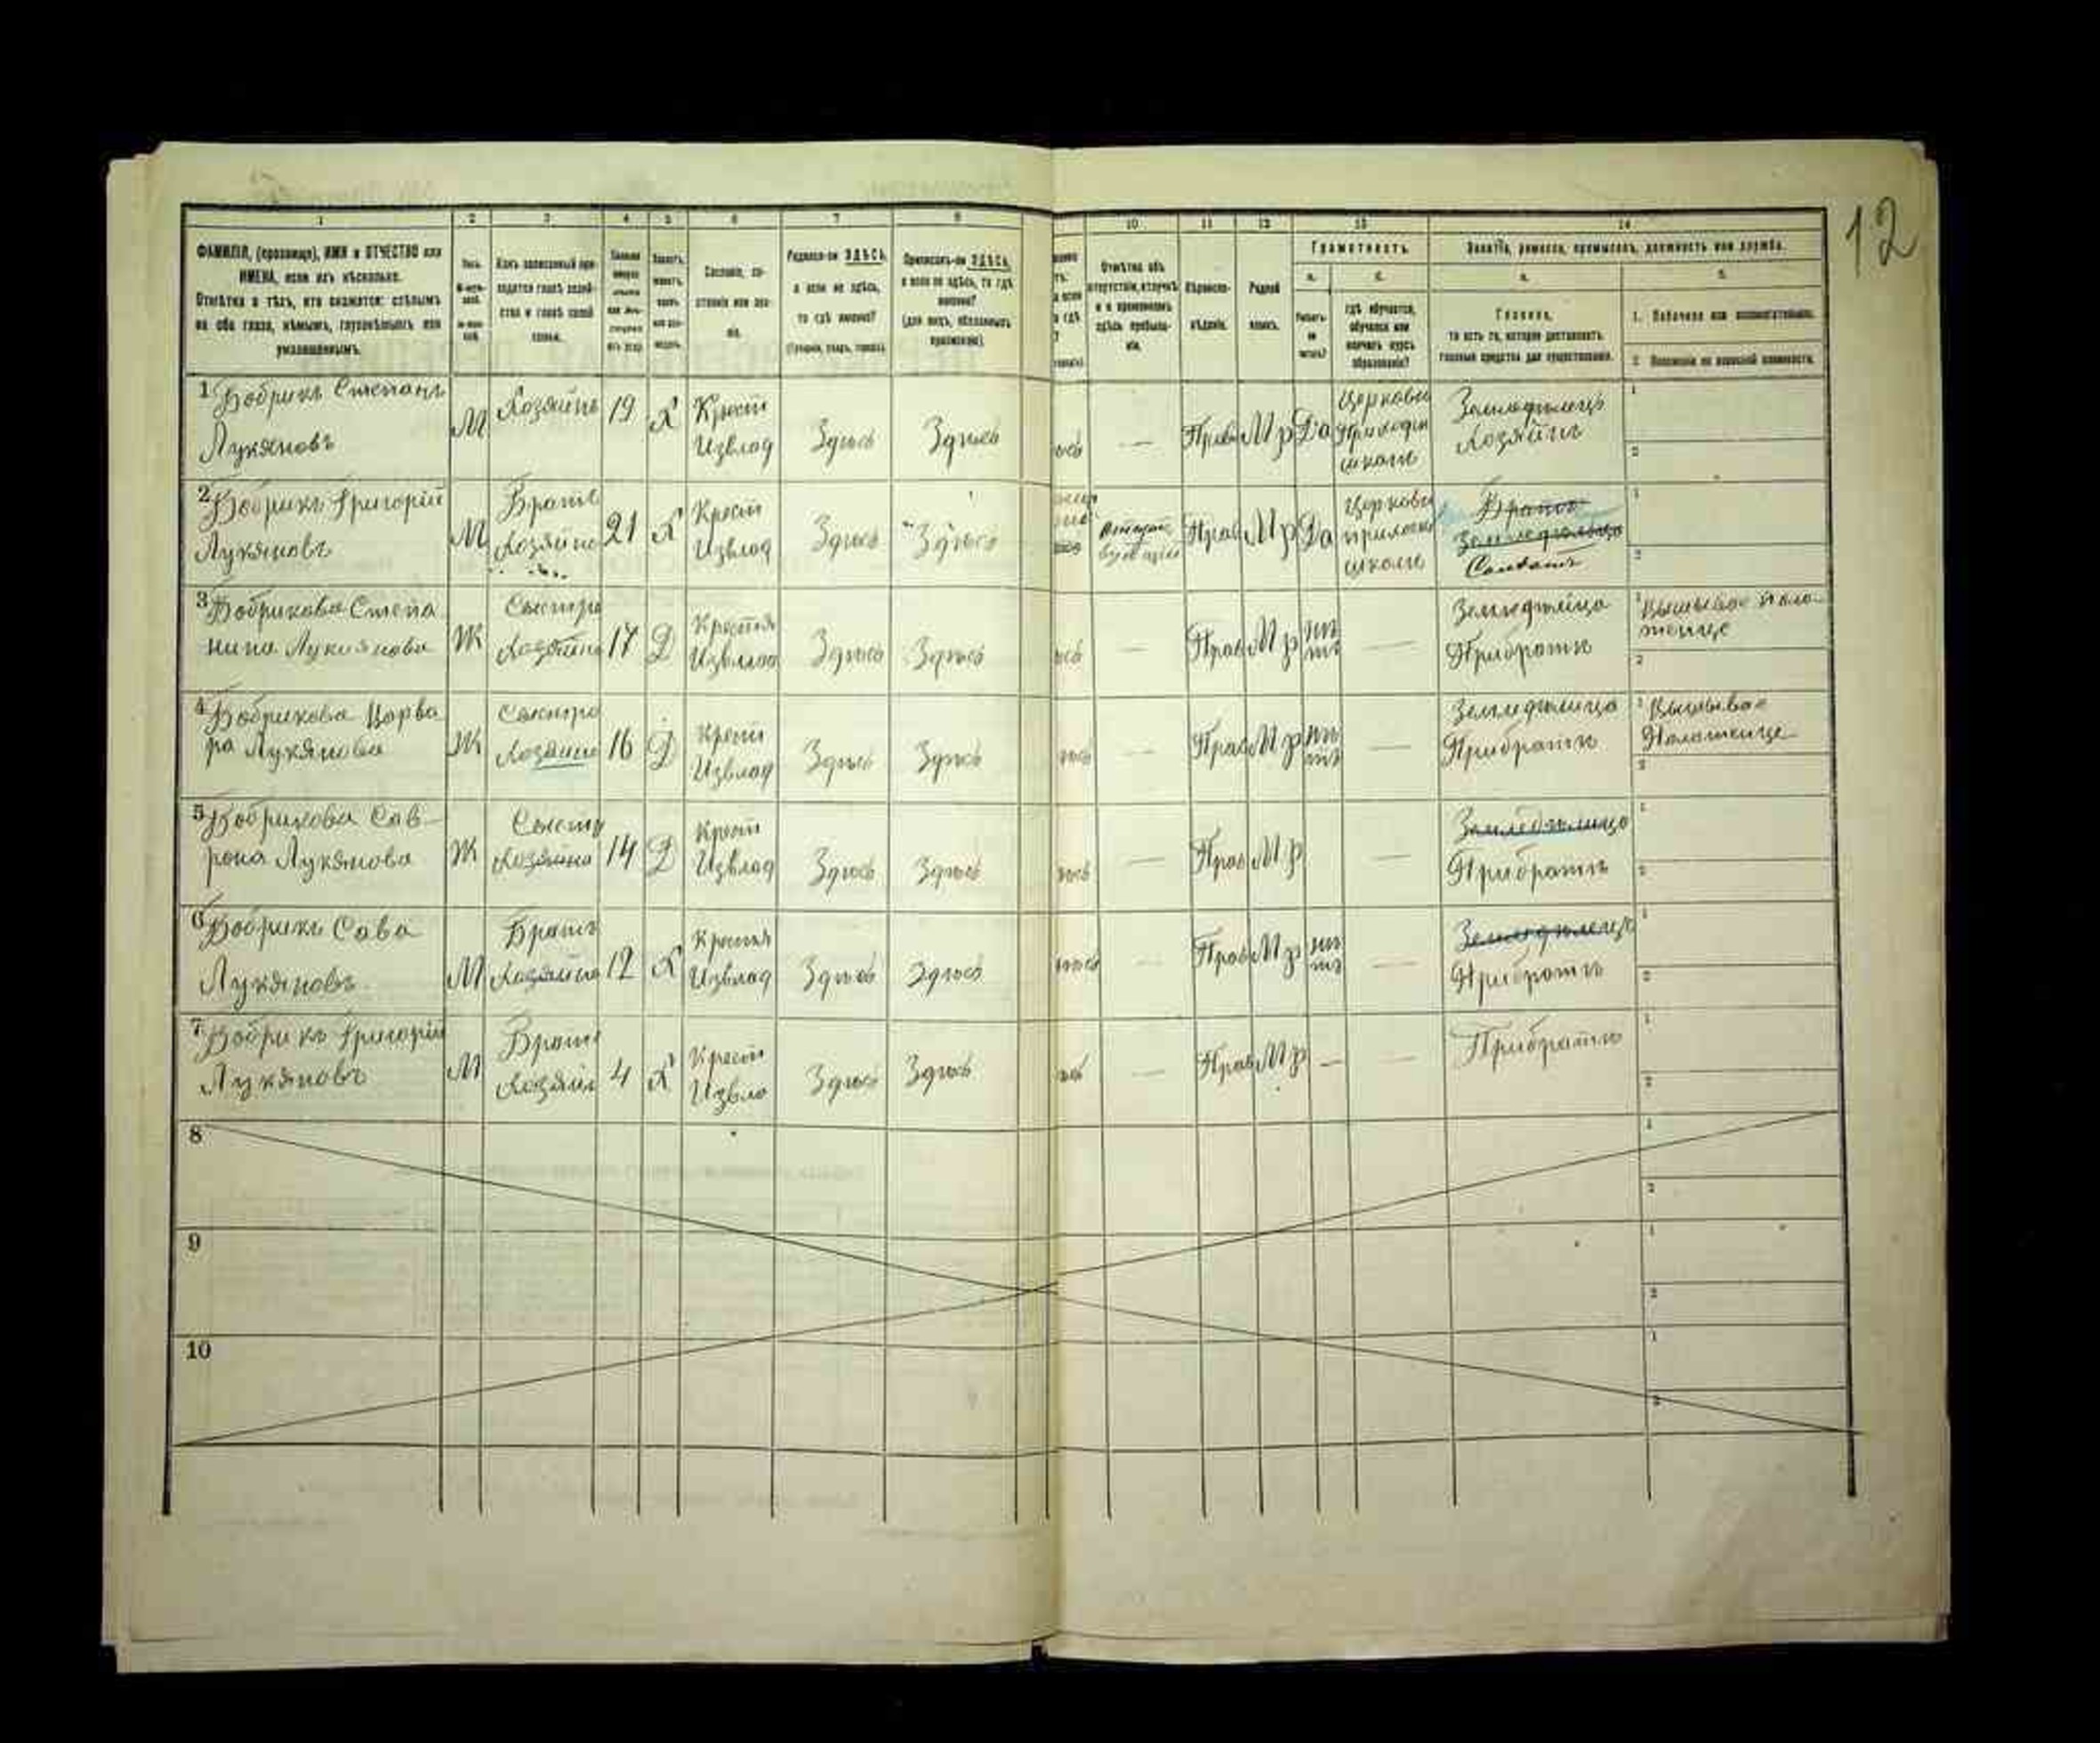 12
1 2 3 4 5 6 7 8 10 11 12 13 14
ФАМИЛІЯ, (прозвище), ИМЯ и ОТЧЕСТВО или
ИМЕНА, если ихъ нѣсколько.
Отмѣтка о тѣхъ, кто окажется: слѣпымъ
на оба глаза, нѣмымъ, глухонѣмымъ или
умалишеннымъ.
Полъ.
Какъ записанный при-
ходится главѣ хозяй-
ства и главѣ своей
семьи.
Сословіе, со-
стояніе или зва-
ніе.
Родился-ли ЗДѢСЬ,
а если не здѣсь,
то гдѣ именно?
(Губернія, уѣздъ, городъ).
Приписанъ-ли ЗДѢСЬ,
а если не здѣсь, то гдѣ
именно?
(для лицъ, обязанныхъ
припискою).
Отмѣтка объ
отсутствіи, отлучкѣ
и о временномъ
здѣсь пребыва-
ніи.
Вѣроиспо-
вѣданіе.
Родной
языкъ.
Грамотность.
а. б.
Умѣетъ-
ли
читать?
гдѣ обучается,
обучался или
кончилъ курсъ
образованія?
Занятіе, ремесло, промыселъ, должность или служба.
а. б.
Главное,
то есть то, которое доставляетъ
главныя средства для существованія.
1. Побочное или вспомогательное.
2. Положеніе по воинской повинности.
1 Бобрикъ Степанъ
Лукяновъ
М Хозяинъ 19 Х Крест Извлад Здѣсь Здѣсь
— Прав М р Да Церковн школе
Земледѣлецъ
Хозяинъ
2 Бобрикъ Григорій
Лукяновъ
М Братъ Хозяина 21 Х Крест Извлад Здѣсь Здѣсь
Прав М р Да Церковн школе
Братъ
Земледѣлецъ
Солдатъ
3 Бобрикова Степа
нида Лукянова
Ж Сыстра Хозяина 17 Д Крестя Извлад Здѣсь Здѣсь
— Прав М р нѣтъ —
Земледѣлица
Прибратѣ
4 Бобрикова Варва
ра Лукянова
Ж Сыстра Хозяина 16 Д Крест Извлад Здѣсь Здѣсь
— Прав М р нѣтъ —
Земледѣлица
Прибратѣ
5 Бобрикова
Лукянова
Ж Хозяина 14 Д Крест Извлад Здѣсь Здѣсь
— Прав М р —
Земледѣлица
Прибратѣ
6 Бобрикъ Сава
Лукяновъ
М Братъ Хозяина 12 Х Крестя Извлад Здѣсь Здѣсь
— Прав М р нѣтъ —
Земледѣлецъ
Прибратѣ
7 Бобрикъ Григорій
Лукяновъ
М Братъ Хозяин 4 Х Крест Извла Здѣсь Здѣсь
— Прав М р — —
Прибратѣ
8
9
10